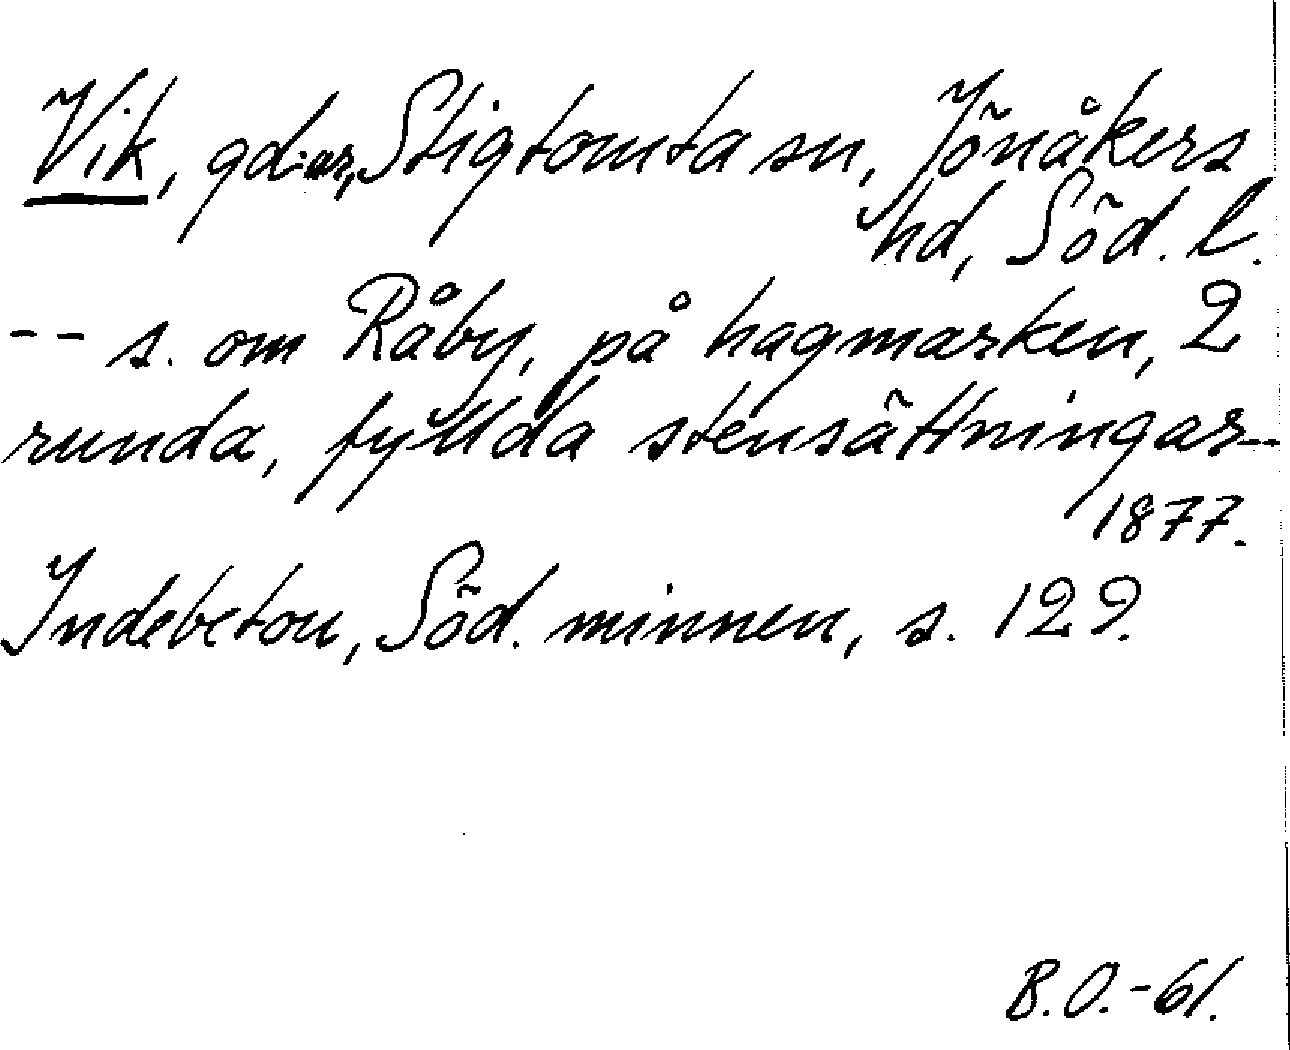 Vik, gd:ar, Stigtomta sn, Jönåkers
hd, Söd. l.
-- s. om Råby, på hagmarken, 2
runda, fyllda stensättningar--
1877.
Indebetou, Söd. minnen, s. 129.
B.O.-61.